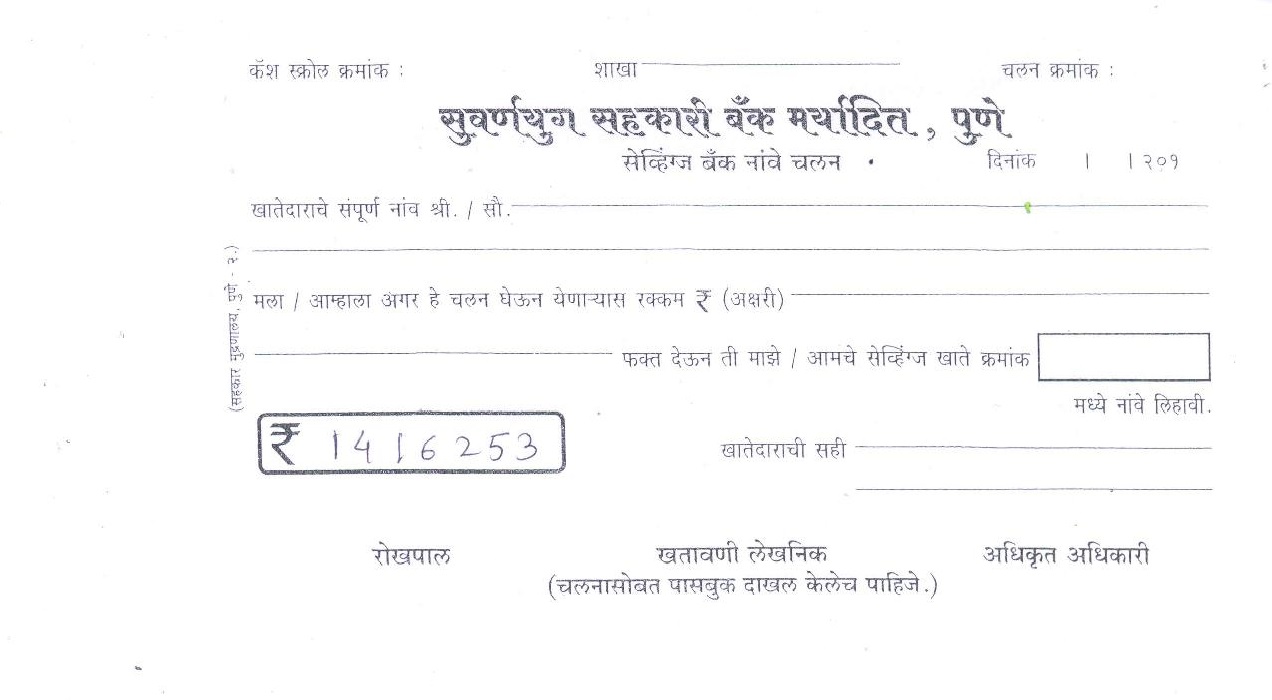 कॅश स्क्रोल क्रमांक : शाखा चलन क्रमांक :
सुवर्णयुग सहकारी बँक मर्यादित, पुणे
सेव्हिंग्ज बँक नांवे चलन दिनांक । । २०१
खातेदाराचे संपूर्ण नांव श्री. / सौ.
मला / आम्हाला अगर हे चलन घेऊन येणाऱ्यास रक्कम ₹ (अक्षरी)
फक्त देऊन ती माझे / आमचे सेव्हिंग्ज खाते क्रमांक
मध्ये नांवे लिहावी.
₹ 1416253 खातेदाराची सही
रोखपाल खतावणी लेखनिक अधिकृत अधिकारी
(चलनासोबत पासबुक दाखल केलेच पाहिजे.)
(सहकार मुद्रणालय, पुणे - २.)